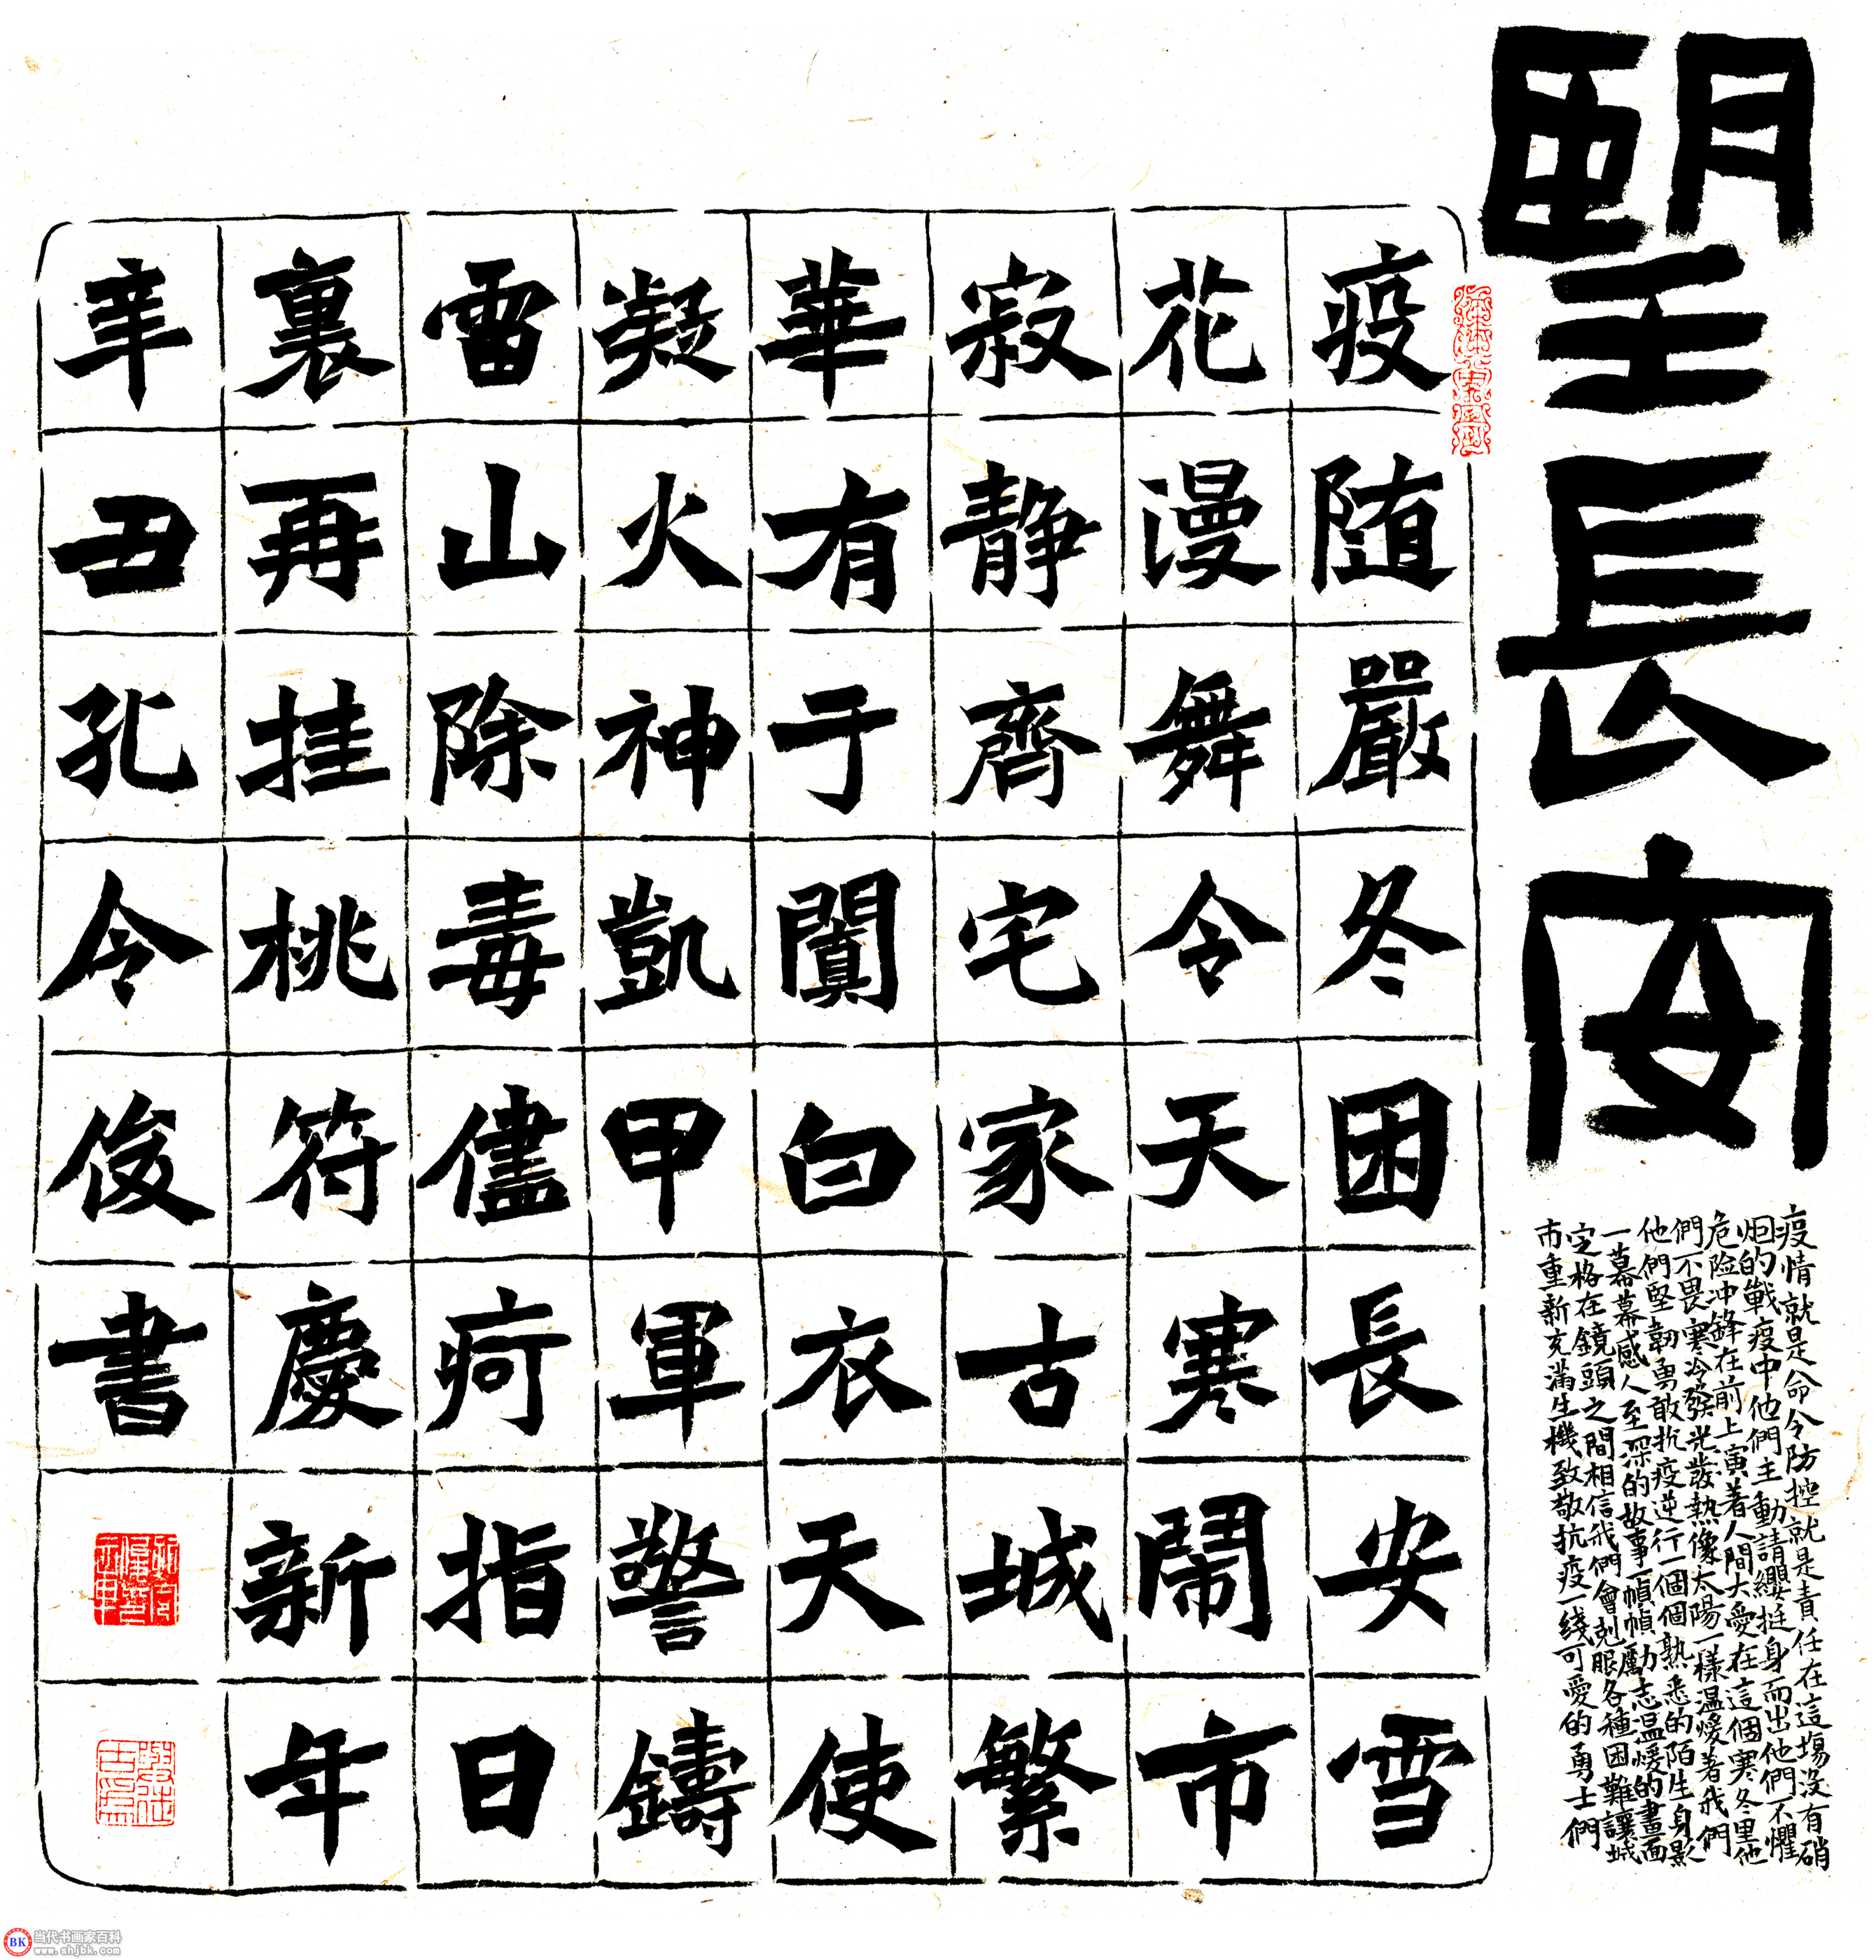 望長安
疫情就是命令防控就是責任在這場没有硝
烟的戰疫中他們主動請纓挺身而出他們不懼
危险冲鋒在前上演著人間大愛在這個寒冬里他
們不畏寒冷發光發熱像太陽一樣温暖著我們
他們堅韌勇敢抗疫逆行一個個熟悉的陌生身影
一幕幕感人至深的故事一幀幀勵志温暖的畫面
定格在鏡頭之間相信我們會剋服各種困難讓城
市重新充滿生機致敬抗疫一綫可愛的勇士們
疫随嚴冬困長安雪
花漫舞令天寒鬧市
寂静齊宅家古城繁
華有于闐白衣天使
凝火神凱甲軍警鑄
雷山除毒儘疴指日
裏再挂桃符慶新年
辛丑孔令俊書
BK 当代书画家百科
www.ahjbk.com